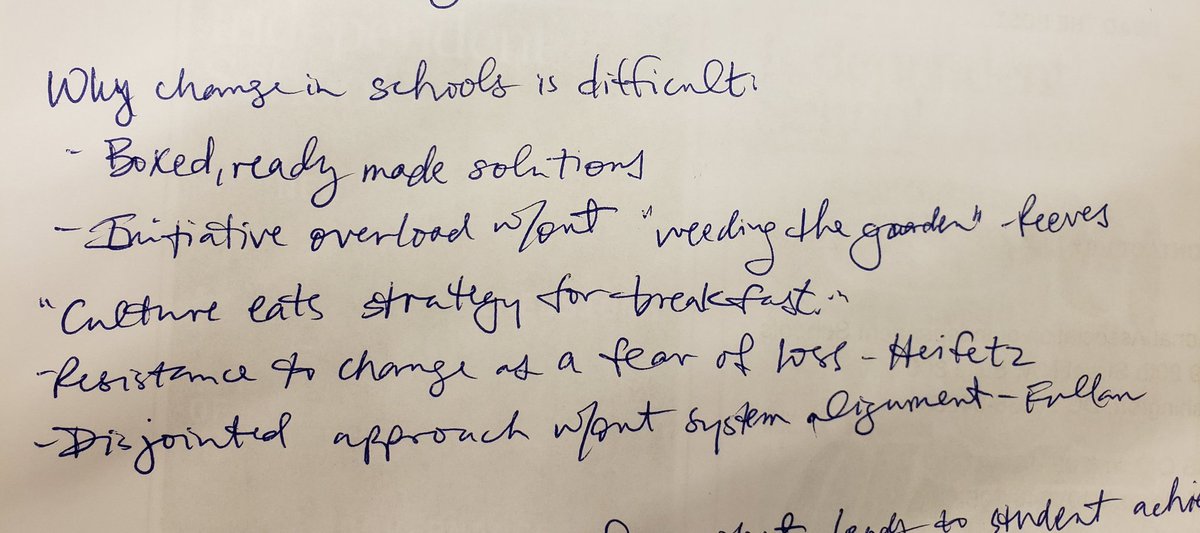 Why change in schools is difficult:
- Boxed, ready made solutions
- Initiative overload w/out "weeding the garden" - Reeves
"Culture eats strategy for breakfast."
- Resistance to change as a fear of loss - Heifetz
- Disjointed approach w/out system alignment - Fullan
leads to student achie